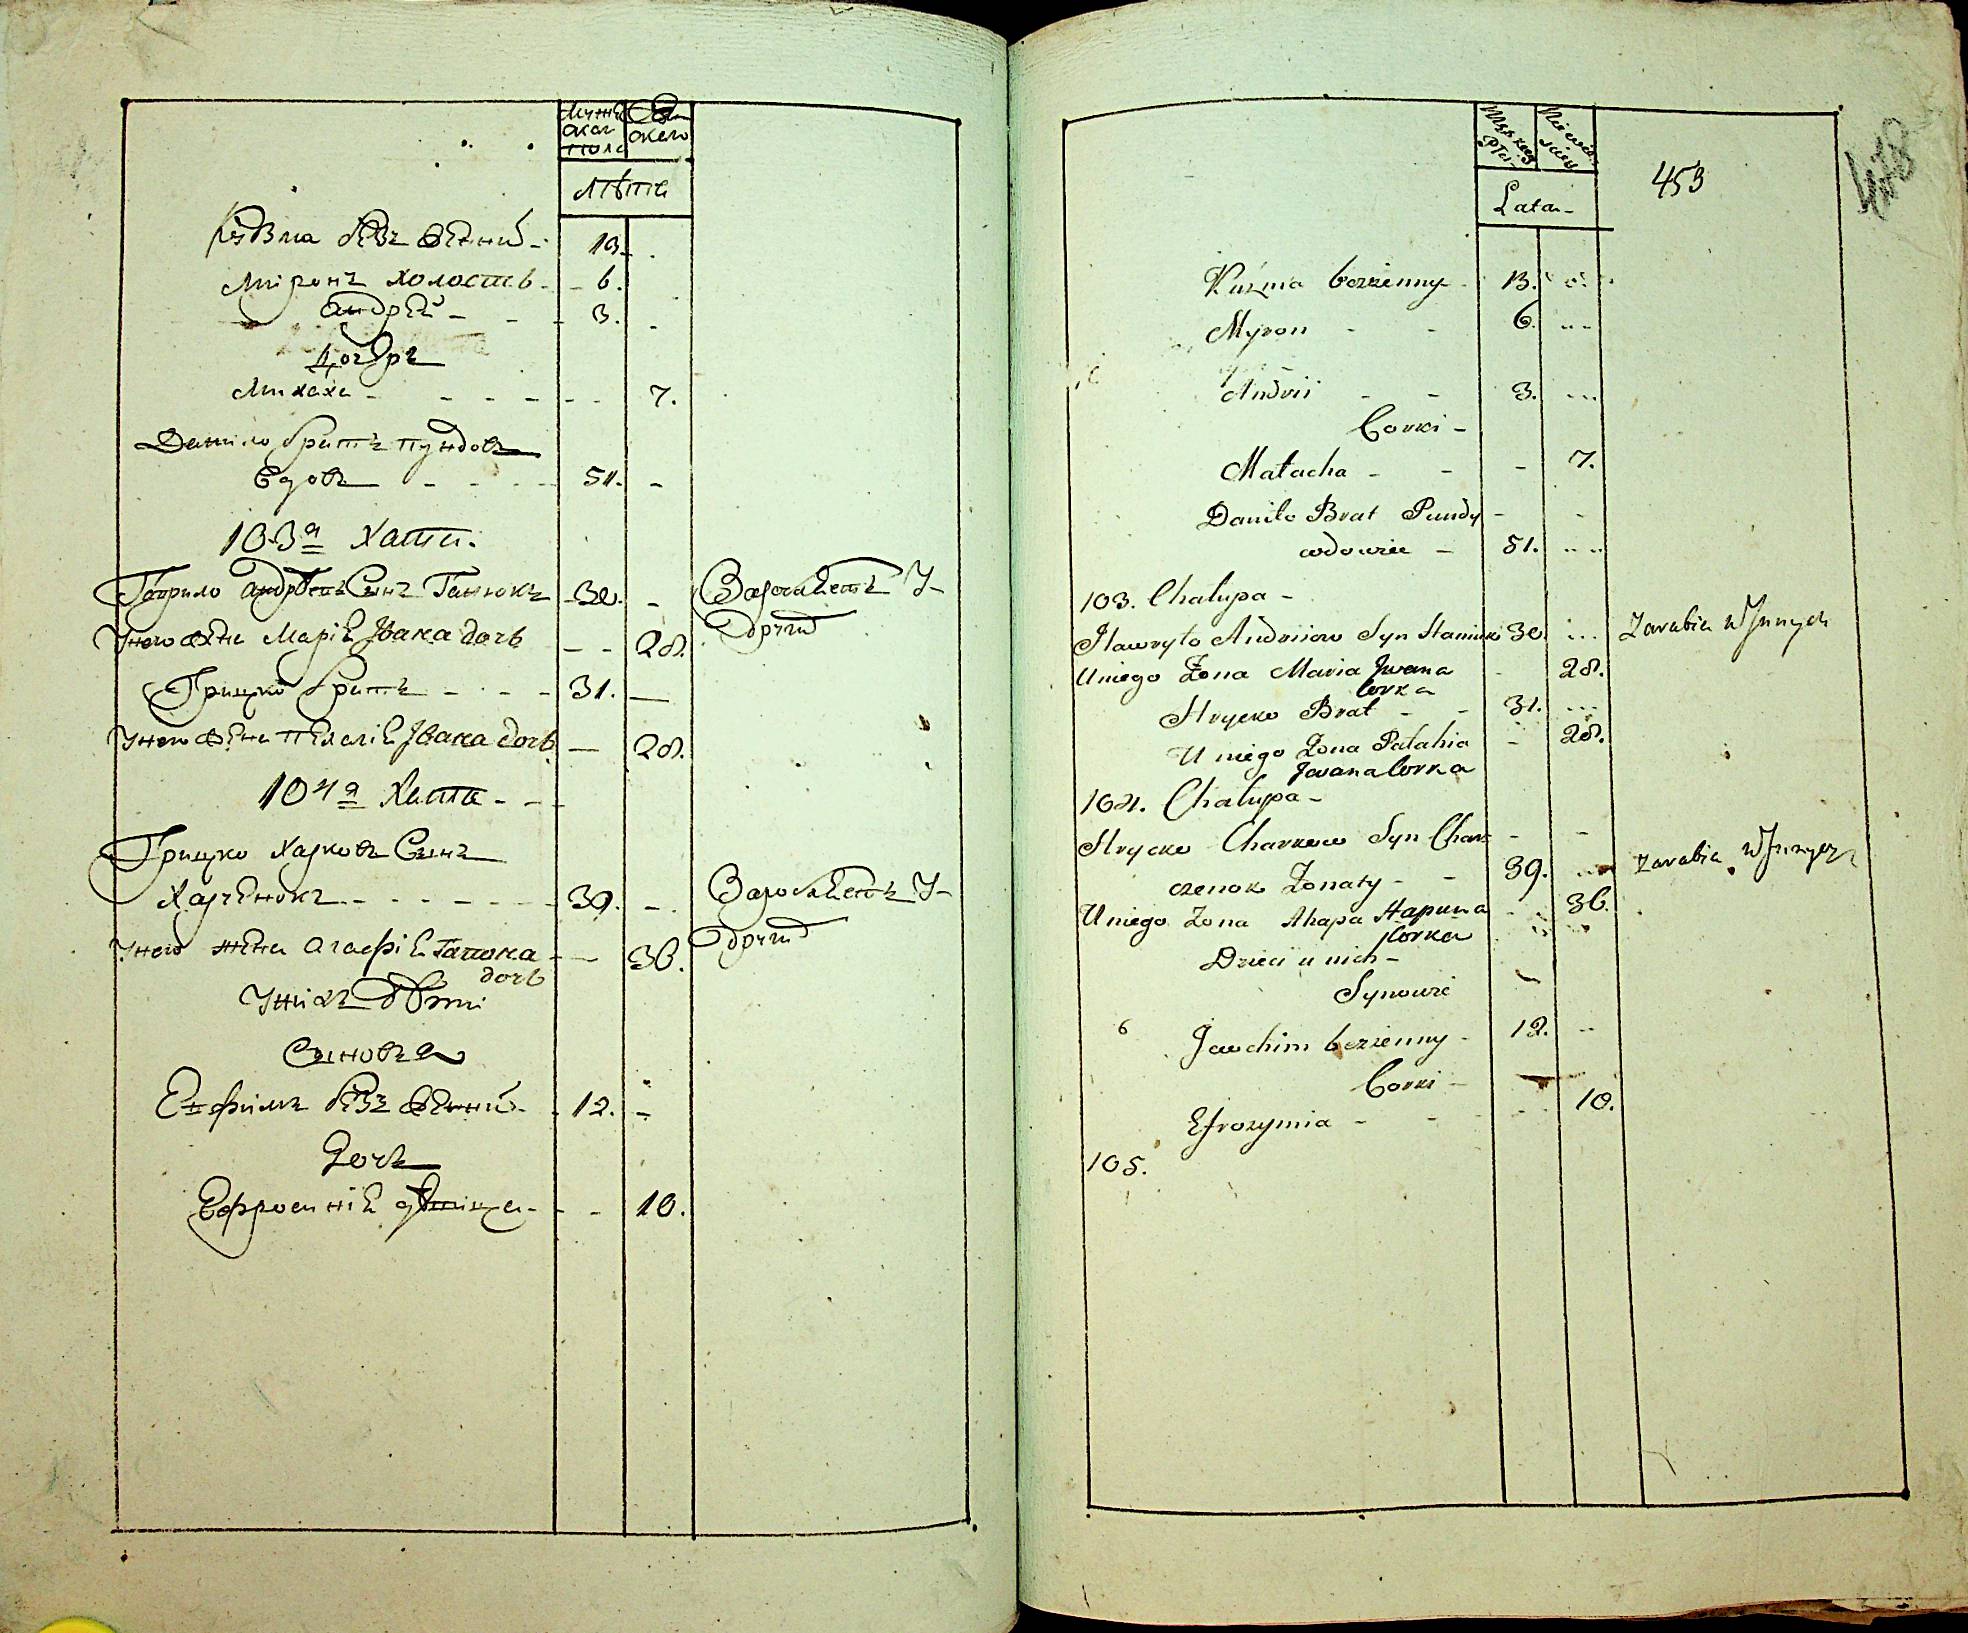 Мужс
окаго
пола
окаго
лѣта
Кузма безженній 13.
Миронъ холостъ 6.
андрѣй 3.
дочеръ
Малаха 7.
Данило братъ пундовъ
вдовъ 51.
103я Хата.
Гаврило андрѣевъ Сынъ Ганюкъ 30.
Заробляетъ У
Другихъ
Унего жена Маріѣ Івана дочь 28.
Грицко братъ 31.
Унего жена пелагіѣ Івана дочь 28.
104я Хата
Грицко Харковъ Сынъ
Харченокъ 39.
Заробляетъ У
Другихъ
Унего жена агафіѣ Гапона 36.
дочь
Унихъ дѣти
Сыновья
Евфимъ безженній 12.
дочь
Евфросиніѣ дѣвица 10.
Męzkiey
Płci
Niewie
sciey
453
478
Lata
Kuźma bezzenny 13.
Myron 6.
Andrii 3.
Corki
Małacha 7.
Daniło Brat Pundy
wdowiec 51.
103. Chałupa
Hawryło Andriiow Syn Haniuk 30. Zarabia w Jnnych
U niego Zona Maria Jwana 28.
Corka
Hrycko Brat 31.
U niego Zona Pałahia 28.
Jwana Corka
104. Chałupa
Hrycko Charkow Syn Char
czenok Zonaty 39. Zarabia w Jnnych
U niego Zona Ahapa Hapona 36.
Corka
Dzieci u nich
Synowie
6 Jawchim bezzenny 12.
Corki
Efrozymia 10.
105.